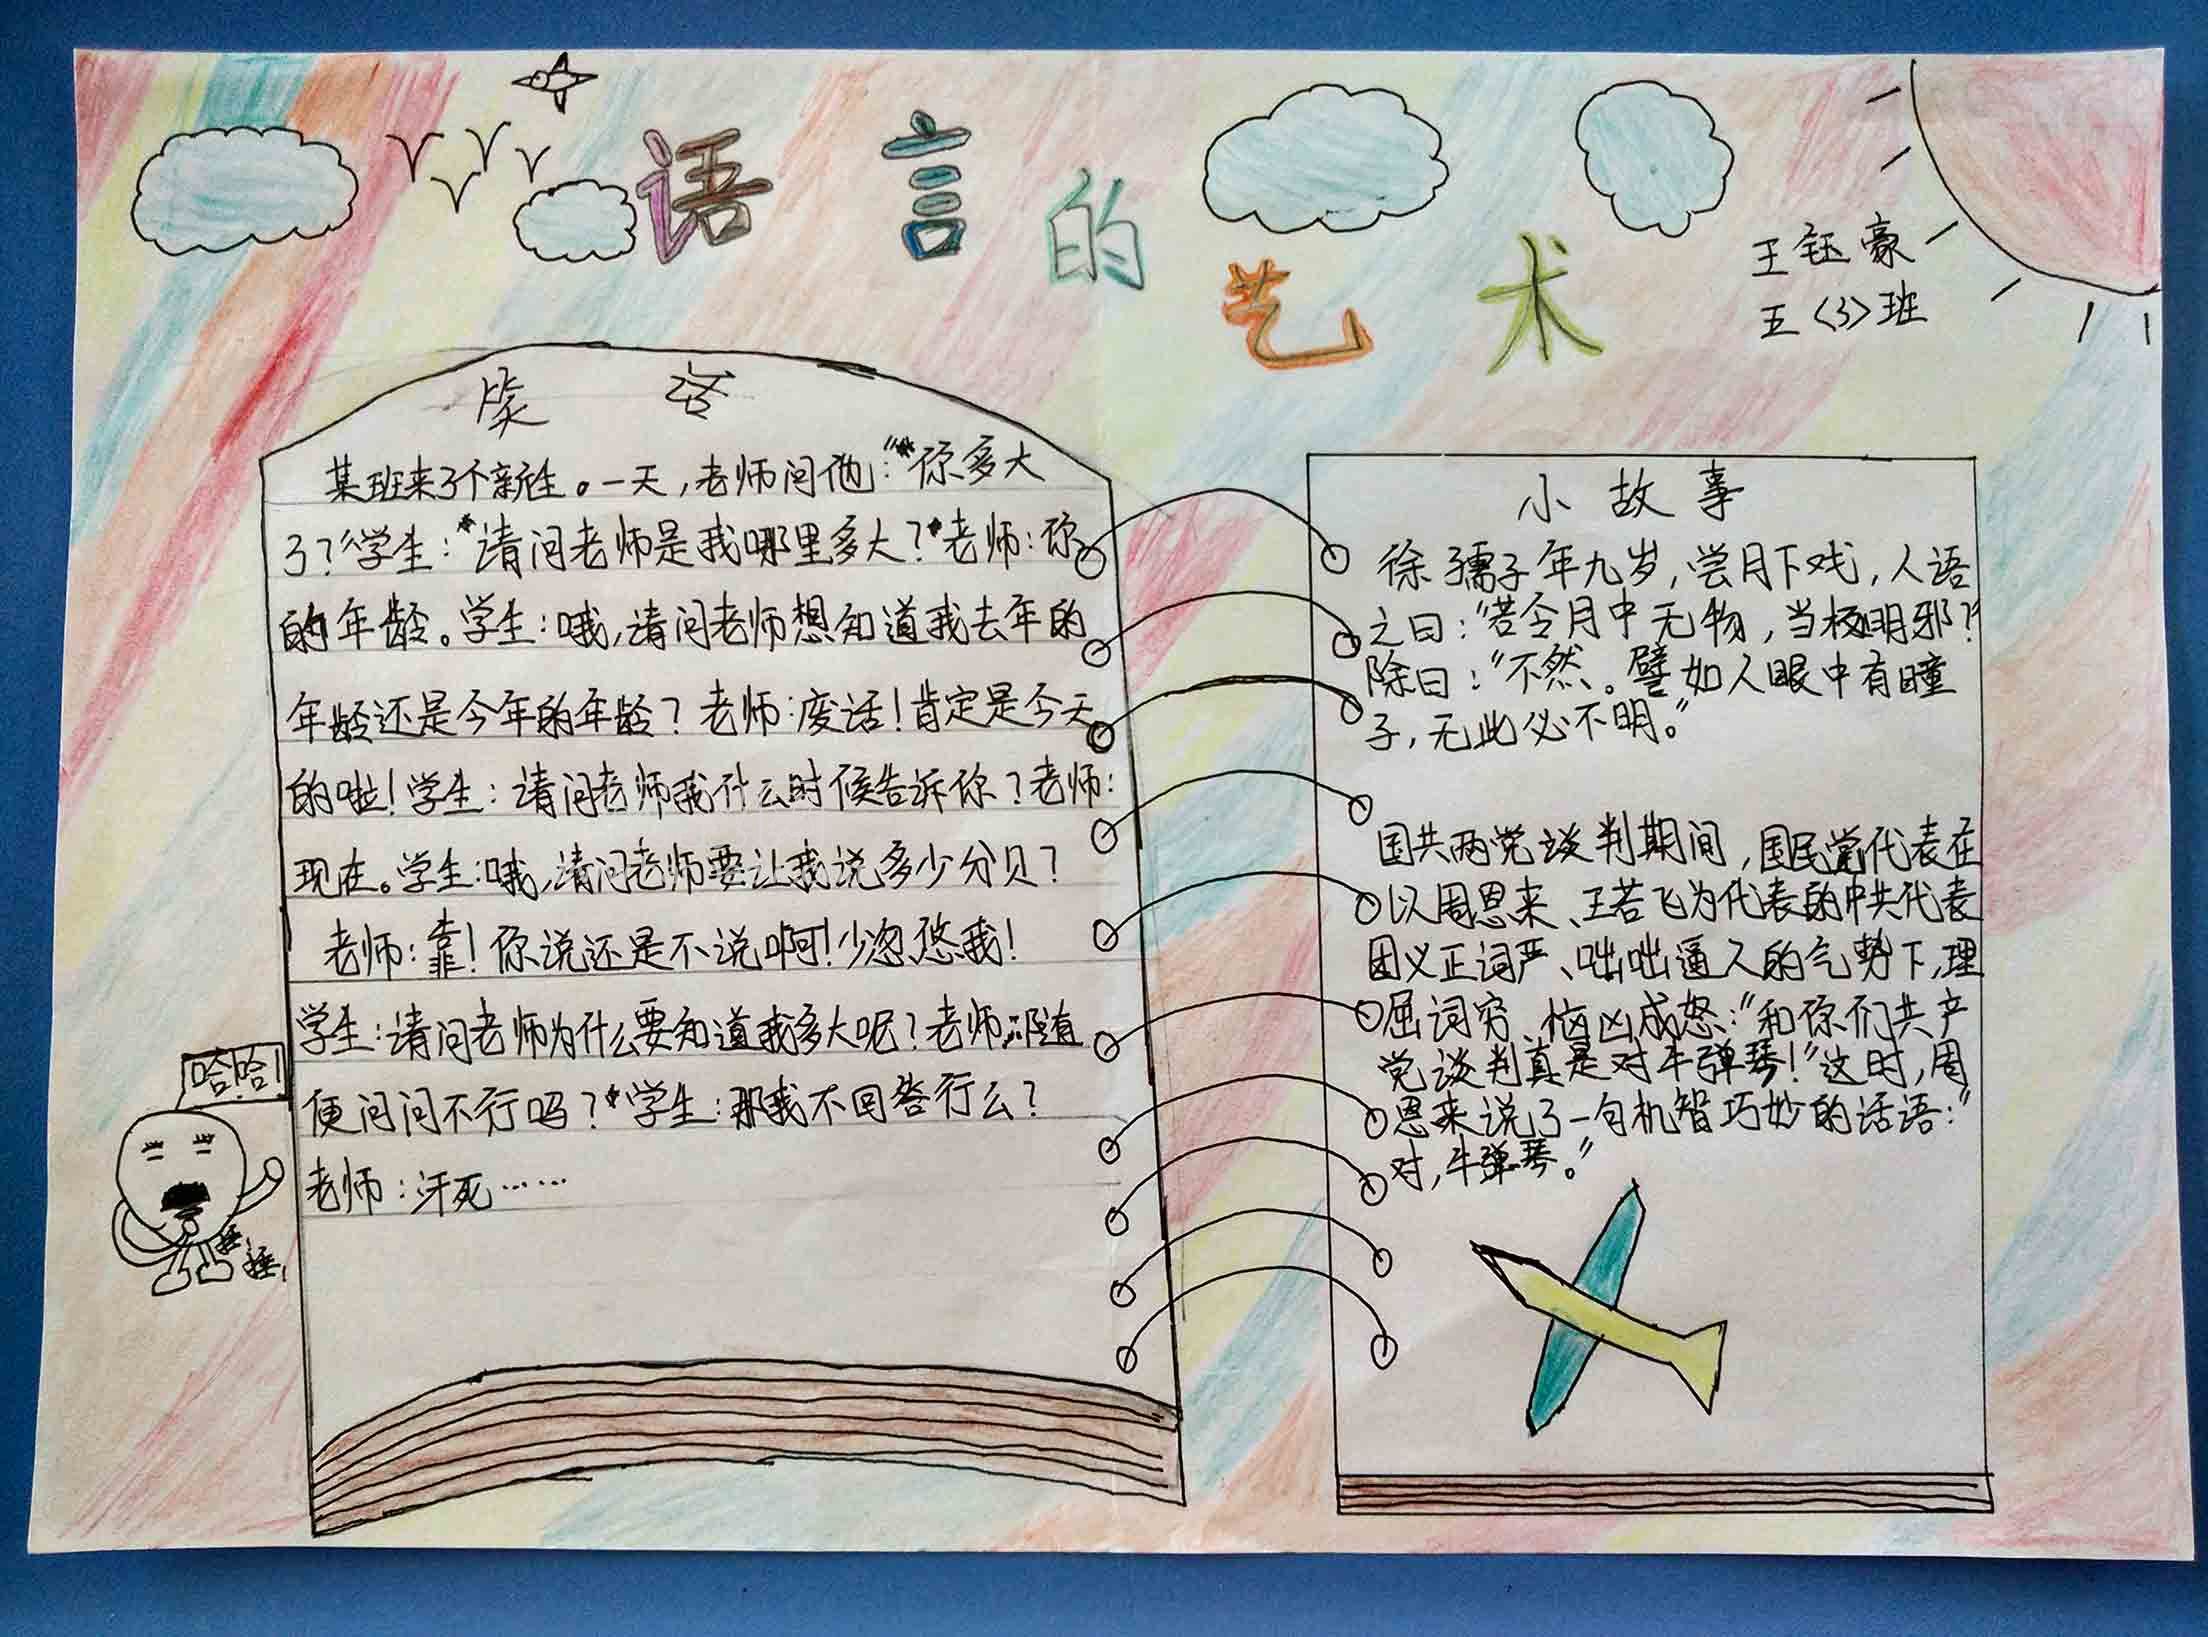 语言的艺术
王钰豪
五〈3〉班
笑话
某班来了个新生。一天，老师问他："你多大
了？"学生："请问老师是我哪里多大？"老师：你
的年龄。学生：哦，请问老师想知道我去年的
年龄还是今年的年龄？老师：废话！肯定是今天
的啦！学生：请问老师我什么时候告诉你？老师：
现在。学生：哦，请问老师要让我说多少分贝？
老师：靠！你说还是不说啊！少忽悠我！
学生：请问老师为什么要知道我多大呢？老师：随
便问问不行吗？"学生：那我不回答行么？
老师：汗死……
哈哈！
小故事
徐孺子年九岁，尝月下戏，人语
之曰："若令月中无物，当极明邪？"
除曰："不然。譬如人眼中有瞳
子，无此必不明。"
国共两党谈判期间，国民党代表在
以周恩来、王若飞为代表的中共代表
团义正词严、咄咄逼人的气势下，理
屈词穷、恼凶成怒："和你们共产
党谈判真是对牛弹琴！"这时，周
恩来说了一句机智巧妙的话语："
对，牛弹琴。"